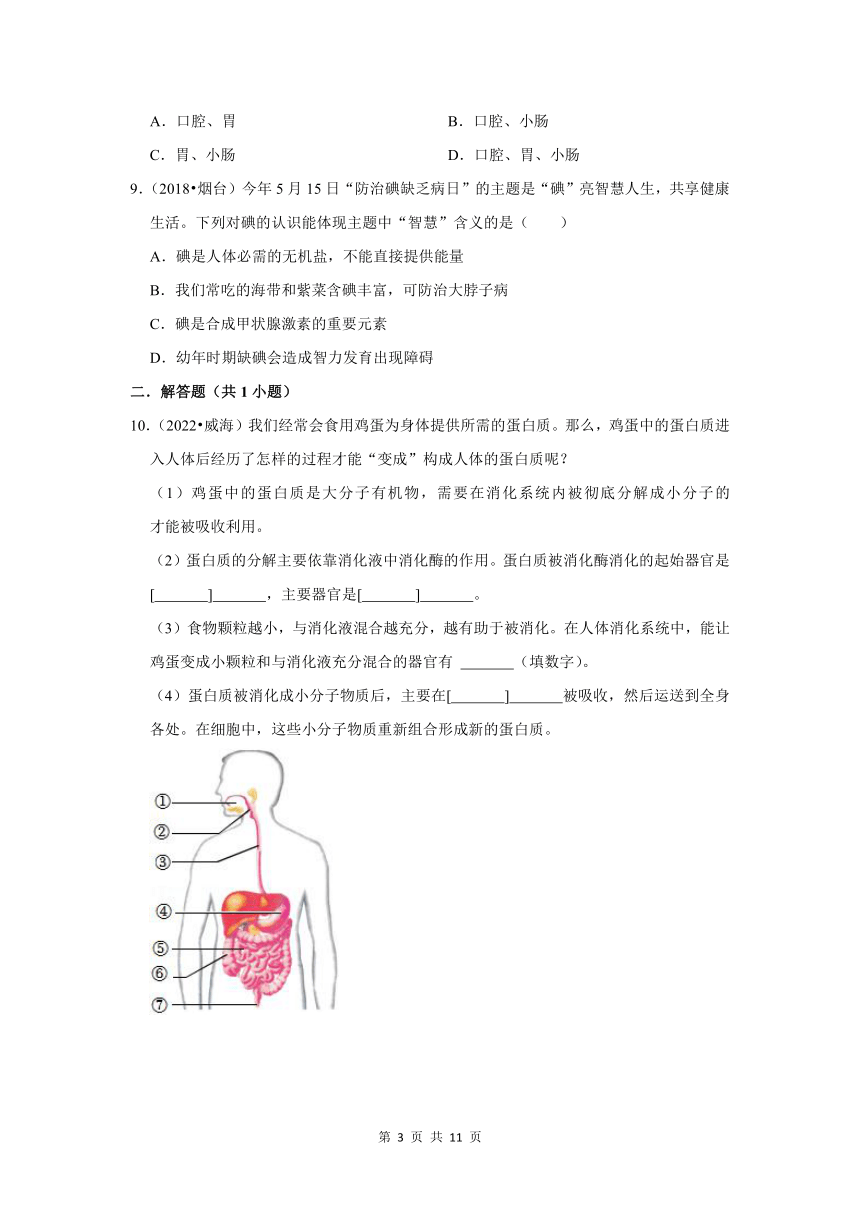 A．口腔、胃 B．口腔、小肠
C．胃、小肠 D．口腔、胃、小肠
9．（2018•烟台）今年 5 月 15 日“防治碘缺乏病日”的主题是“碘”亮智慧人生，共享健康
生活。下列对碘的认识能体现主题中“智慧”含义的是（　　）
A．碘是人体必需的无机盐，不能直接提供能量
B．我们常吃的海带和紫菜含碘丰富，可防治大脖子病
C．碘是合成甲状腺激素的重要元素
D．幼年时期缺碘会造成智力发育出现障碍
二．解答题（共 1 小题）
10．（2022•威海）我们经常会食用鸡蛋为身体提供所需的蛋白质。那么，鸡蛋中的蛋白质进
入人体后经历了怎样的过程才能“变成”构成人体的蛋白质呢？
（1）鸡蛋中的蛋白质是大分子有机物，需要在消化系统内被彻底分解成小分子的
才能被吸收利用。
（2）蛋白质的分解主要依靠消化液中消化酶的作用。蛋白质被消化酶消化的起始器官是
[______]______，主要器官是[______]______。
（3）食物颗粒越小，与消化液混合越充分，越有助于被消化。在人体消化系统中，能让
鸡蛋变成小颗粒和与消化液充分混合的器官有 ______（填数字）。
（4）蛋白质被消化成小分子物质后，主要在[______]______被吸收，然后运送到全身
各处。在细胞中，这些小分子物质重新组合形成新的蛋白质。
①
②
③
④
⑤
⑥
⑦
第 3 页 共 11 页